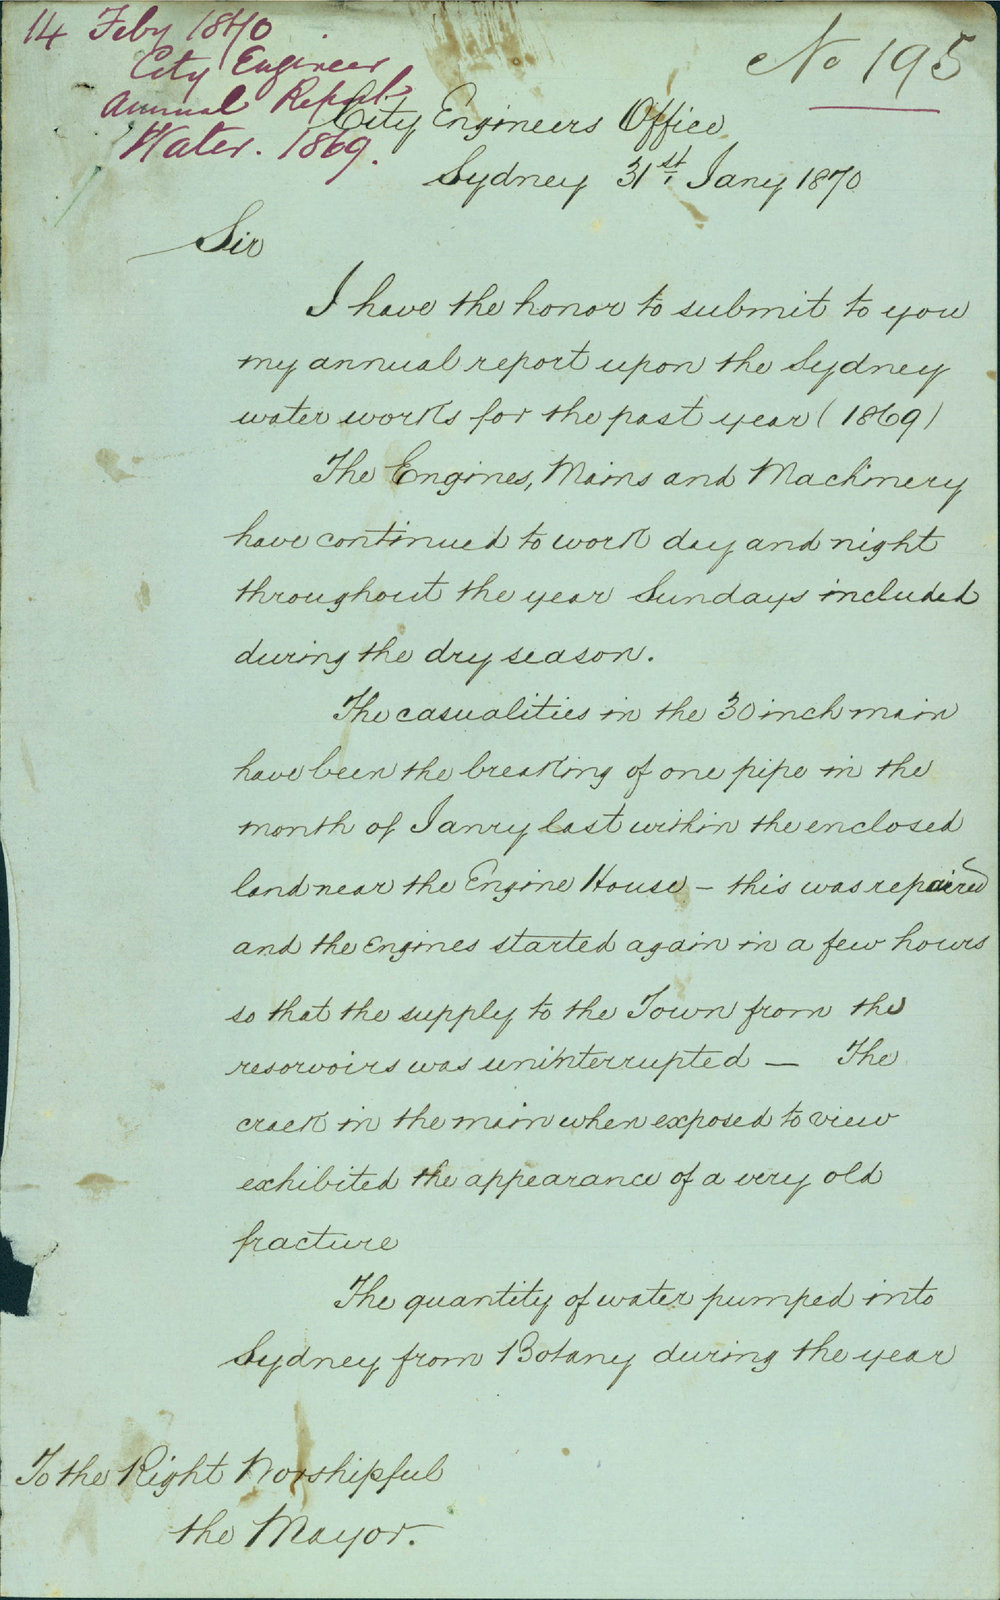 14 Feby 1870
City Engineer
Annual Report
Water. 1869.
No 195
City Engineers Office
Sydney 31st Jany 1870
Sir
I have the honor to submit to you
my annual report upon the Sydney
water works for the past year (1869)
The Engines, Mains and Machinery
have continued to work day and night
throughout the year Sundays included
during the dry season.
The casualities in the 30 inch main
have been the breaking of one pipe in the
month of Janry last within the enclosed
land near the Engine House - this was repaired
and the Engines started again in a few hours
so that the supply to the Town from the
resorvoirs was uninterrupted — The
crack in the main when exposed to view
exhibited the appearance of a very old
fracture
The quantity of water pumped into
Sydney from Botany during the year
To the Right Worshipful
the Mayor.